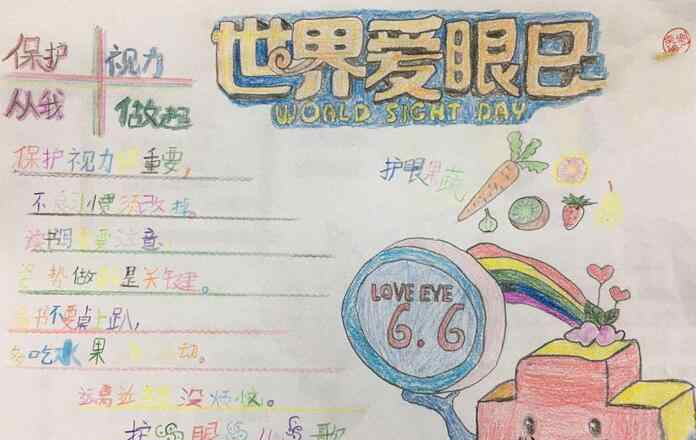 保护 视力
从我 做起
世界爱眼日
WORLD SIGHT DAY
保护视力 重要,
不良习惯须改掉。
读书 要注意,
姿势做 是关键。
书不要桌上趴,
多吃水果 动。
远离 没烦恼。
护眼儿歌
护眼果蔬
LOVE EYE
6.6